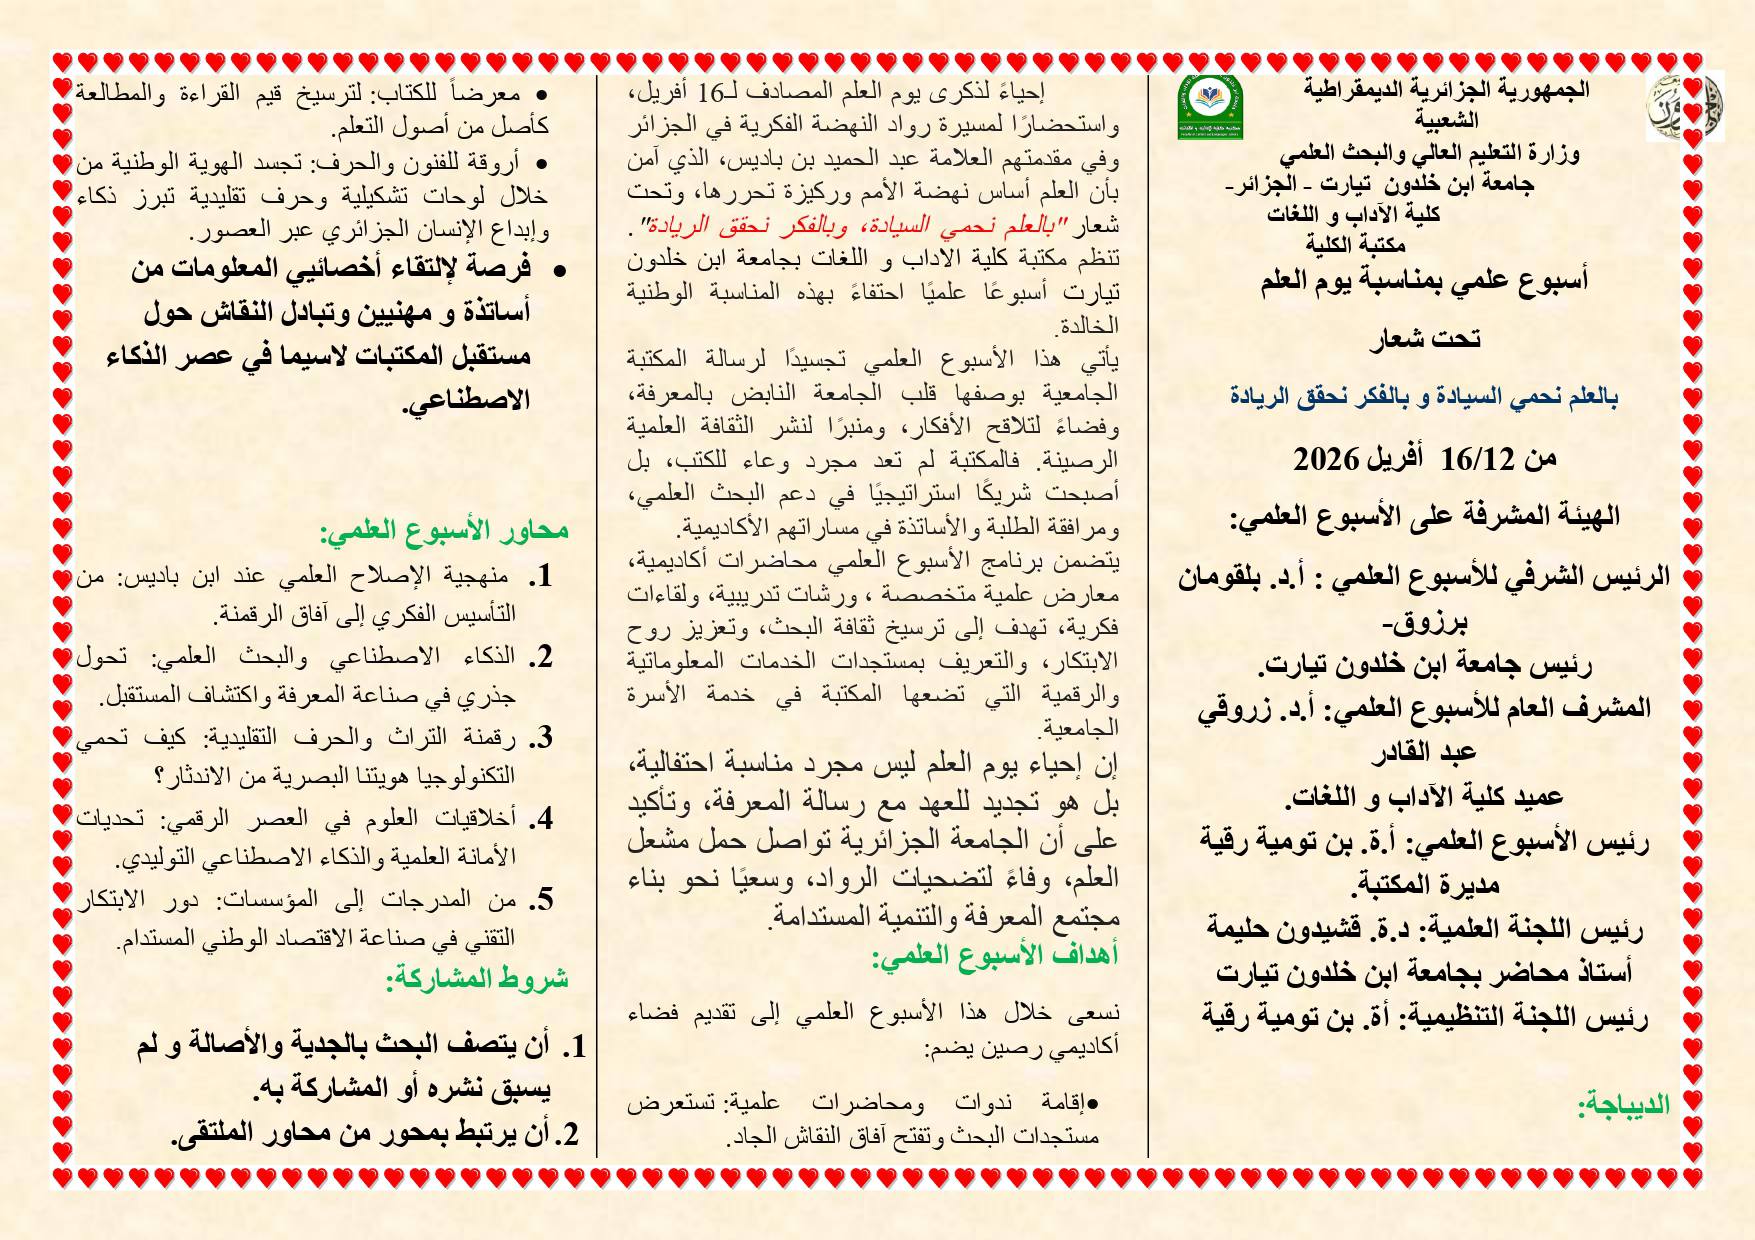 الجمهورية الجزائرية الديمقراطية
الشعبية
وزارة التعليم العالي والبحث العلمي
جامعة ابن خلدون تيارت - الجزائر-
كلية الآداب و اللغات
مكتبة الكلية
أسبوع علمي بمناسبة يوم العلم
تحت شعار
بالعلم نحمي السيادة و بالفكر نحقق الريادة
من 16/12 أفريل 2026
الهيئة المشرفة على الأسبوع العلمي:
الرئيس الشرفي للأسبوع العلمي : أ.د. بلقومان
برزوق-
رئيس جامعة ابن خلدون تيارت.
المشرف العام للأسبوع العلمي: أ.د. زروقي
عبد القادر
عميد كلية الآداب و اللغات.
رئيس الأسبوع العلمي: أ.ة. بن تومية رقية
مديرة المكتبة.
رئيس اللجنة العلمية: د.ة. قشيدون حليمة
أستاذ محاضر بجامعة ابن خلدون تيارت
رئيس اللجنة التنظيمية: أة. بن تومية رقية
الديباجة:
إحياءً لذكرى يوم العلم المصادف لـ16 أفريل،
واستحضارًا لمسيرة رواد النهضة الفكرية في الجزائر
وفي مقدمتهم العلامة عبد الحميد بن باديس، الذي آمن
بأن العلم أساس نهضة الأمم وركيزة تحررها، وتحت
شعار "بالعلم نحمي السيادة، وبالفكر نحقق الريادة".
تنظم مكتبة كلية الاداب و اللغات بجامعة ابن خلدون
تيارت أسبوعًا علميًا احتفاءً بهذه المناسبة الوطنية
الخالدة.
يأتي هذا الأسبوع العلمي تجسيدًا لرسالة المكتبة
الجامعية بوصفها قلب الجامعة النابض بالمعرفة،
وفضاءً لتلاقح الأفكار، ومنبرًا لنشر الثقافة العلمية
الرصينة. فالمكتبة لم تعد مجرد وعاء للكتب، بل
أصبحت شريكًا استراتيجيًا في دعم البحث العلمي،
ومرافقة الطلبة والأساتذة في مساراتهم الأكاديمية.
يتضمن برنامج الأسبوع العلمي محاضرات أكاديمية،
معارض علمية متخصصة ، ورشات تدريبية، ولقاءات
فكرية، تهدف إلى ترسيخ ثقافة البحث، وتعزيز روح
الابتكار، والتعريف بمستجدات الخدمات المعلوماتية
والرقمية التي تضعها المكتبة في خدمة الأسرة
الجامعية.
إن إحياء يوم العلم ليس مجرد مناسبة احتفالية،
بل هو تجديد للعهد مع رسالة المعرفة، وتأكيد
على أن الجامعة الجزائرية تواصل حمل مشعل
العلم، وفاءً لتضحيات الرواد، وسعيًا نحو بناء
مجتمع المعرفة والتنمية المستدامة.
أهداف الأسبوع العلمي:
نسعى خلال هذا الأسبوع العلمي إلى تقديم فضاء
أكاديمي رصين يضم:
•إقامة ندوات ومحاضرات علمية: تستعرض
مستجدات البحث وتفتح آفاق النقاش الجاد.
• معرضاً للكتاب: لترسيخ قيم القراءة والمطالعة
كأصل من أصول التعلم.
• أروقة للفنون والحرف: تجسد الهوية الوطنية من
خلال لوحات تشكيلية وحرف تقليدية تبرز ذكاء
وإبداع الإنسان الجزائري عبر العصور.
• فرصة لإلتقاء أخصائيي المعلومات من
أساتذة و مهنيين وتبادل النقاش حول
مستقبل المكتبات لاسيما في عصر الذكاء
الاصطناعي.
محاور الأسبوع العلمي:
1. منهجية الإصلاح العلمي عند ابن باديس: من
التأسيس الفكري إلى آفاق الرقمنة.
2. الذكاء الاصطناعي والبحث العلمي: تحول
جذري في صناعة المعرفة واكتشاف المستقبل.
3. رقمنة التراث والحرف التقليدية: كيف تحمي
التكنولوجيا هويتنا البصرية من الاندثار؟
4. أخلاقيات العلوم في العصر الرقمي: تحديات
الأمانة العلمية والذكاء الاصطناعي التوليدي.
5. من المدرجات إلى المؤسسات: دور الابتكار
التقني في صناعة الاقتصاد الوطني المستدام.
شروط المشاركة:
1. أن يتصف البحث بالجدية والأصالة و لم
يسبق نشره أو المشاركة به.
2. أن يرتبط بمحور من محاور الملتقى.